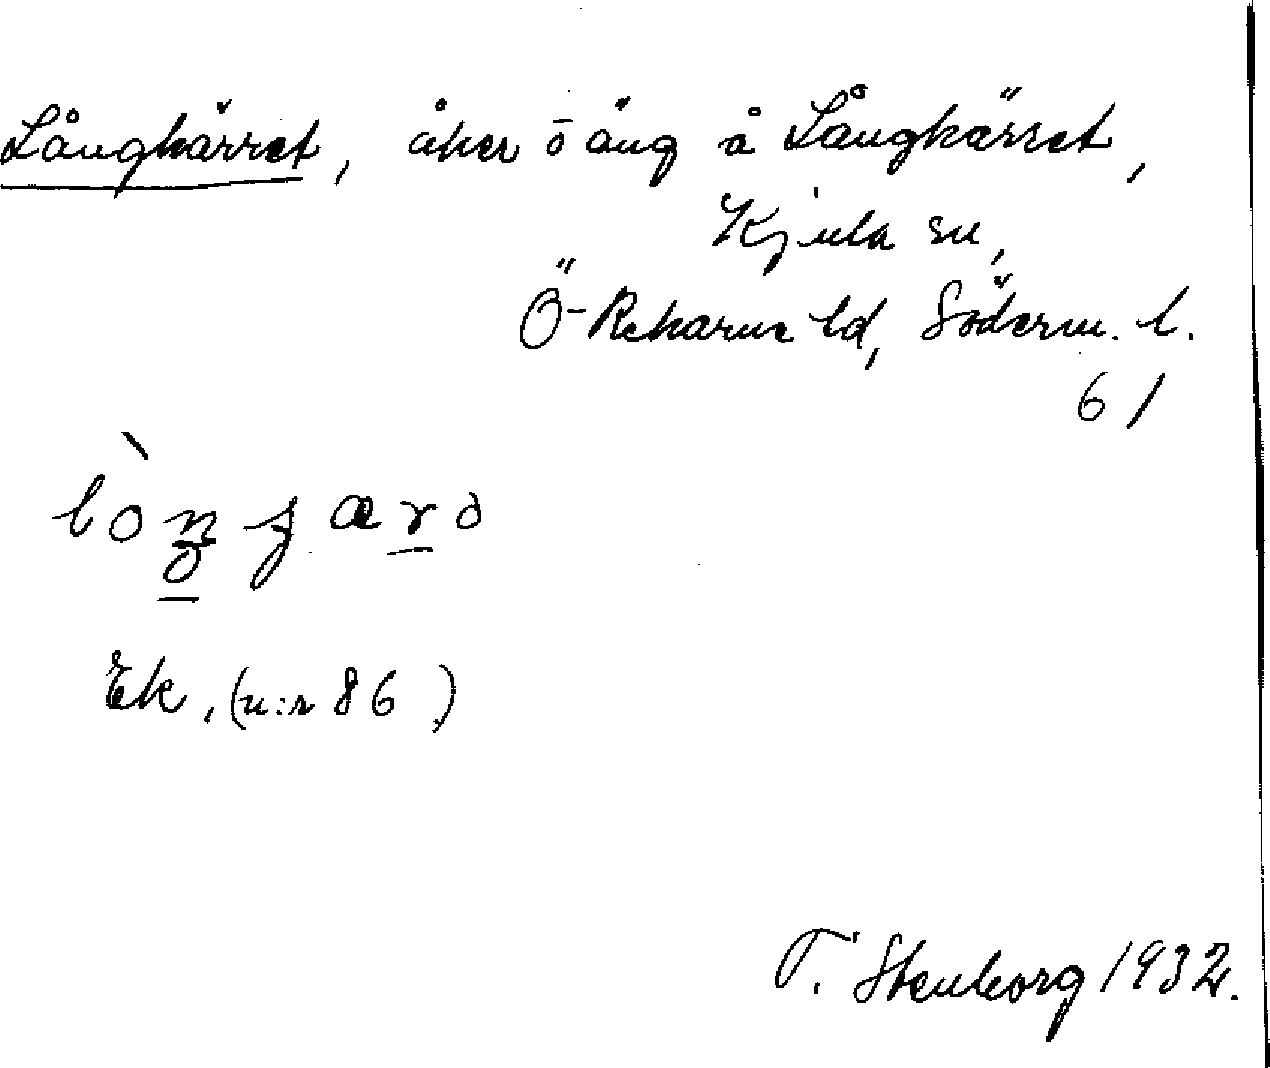 Långkärret, åker o äng å Långkärret,
Kjula sn,
Ö-Rekarne hd, Söderm. l.
61
Ek, (n:r 86)
T. Stenborg 1932.